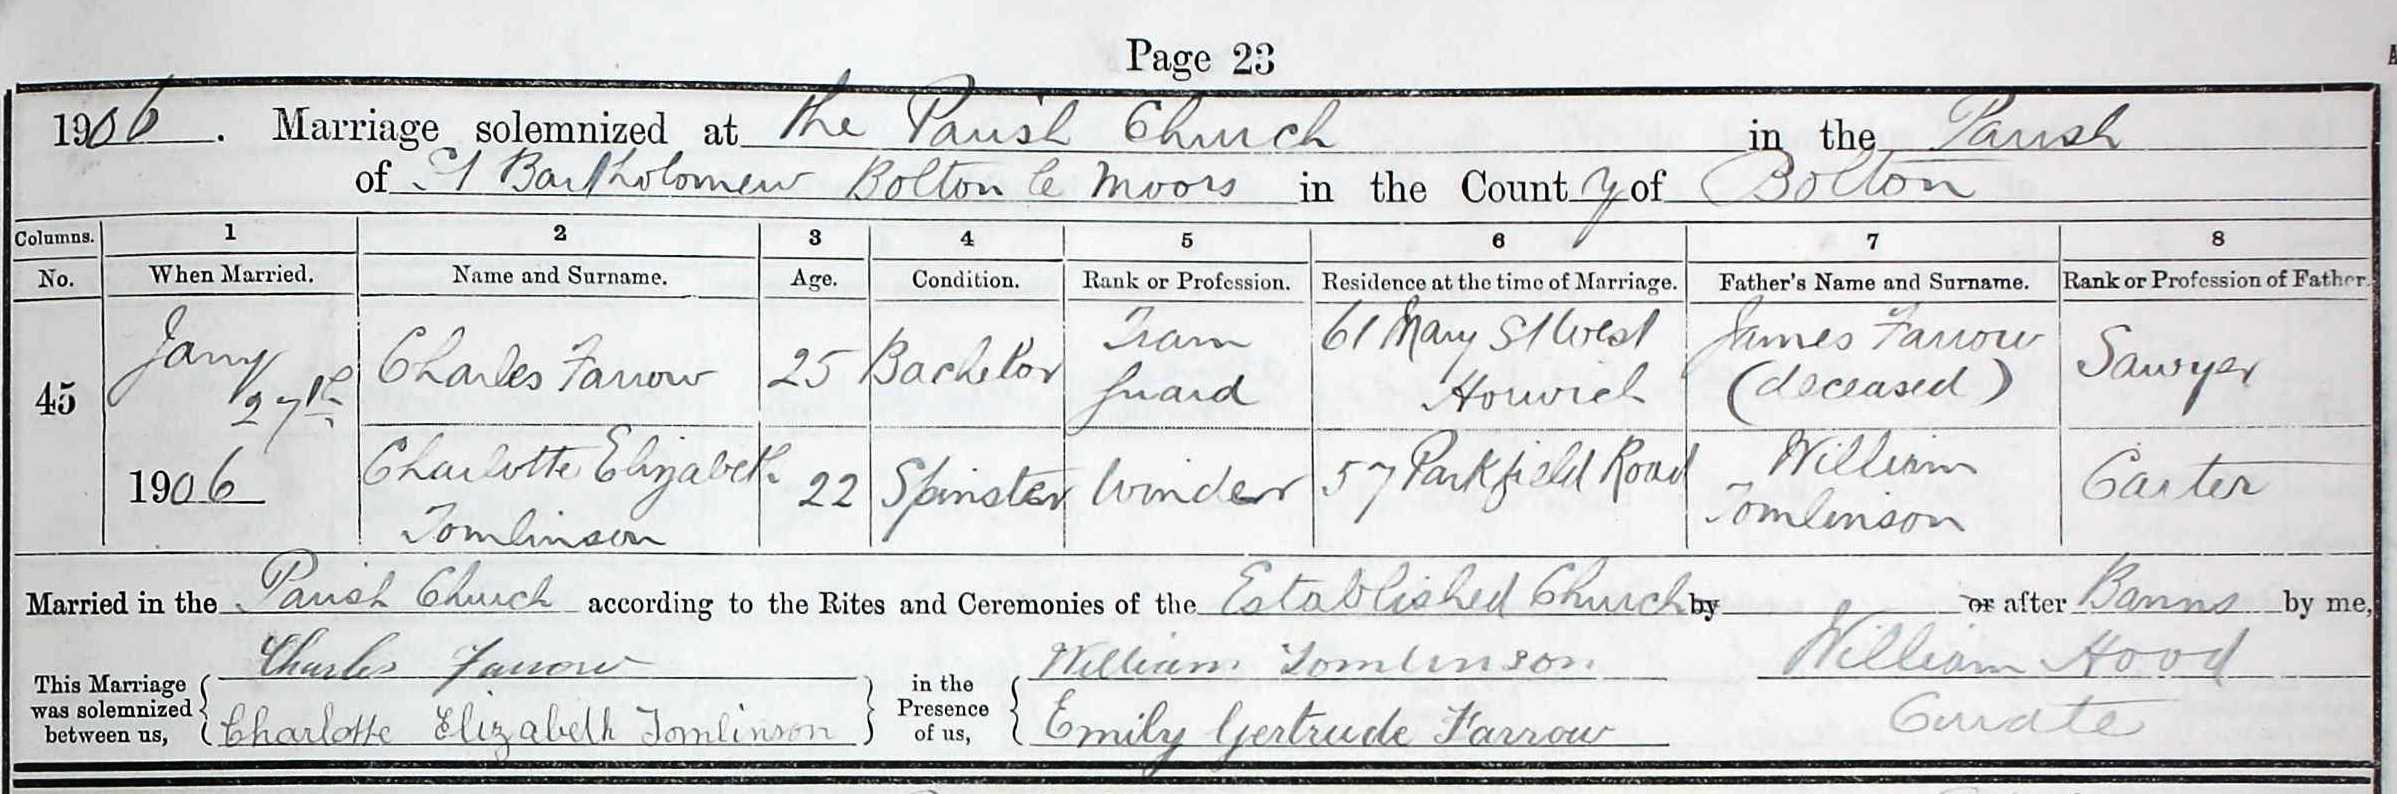 Page 23
1906. Marriage solemnized at the Parish Church in the Parish
of St Bartholomew Bolton le Moors in the County of Bolton
Columns. 1 2 3 4 5 6 7 8
No. When Married. Name and Surname. Age. Condition. Rank or Profession. Residence at the time of Marriage. Father's Name and Surname. Rank or Profession of Father.
45 Jany 27th 1906 Charles Farrow 25 Bachelor Tram Guard 61 Mary St West Horwich James Farrow (deceased) Sawyer
Charlotte Elizabeth Tomlinson 22 Spinster Winder 57 Parkfield Road William Tomlinson Carter
Married in the Parish Church according to the Rites and Ceremonies of the Established Church by or after Banns by me,
This Marriage was solemnized between us, Charles Farrow Charlotte Elizabeth Tomlinson in the Presence of us, William Tomlinson Emily Gertrude Farrow William Hood Curate